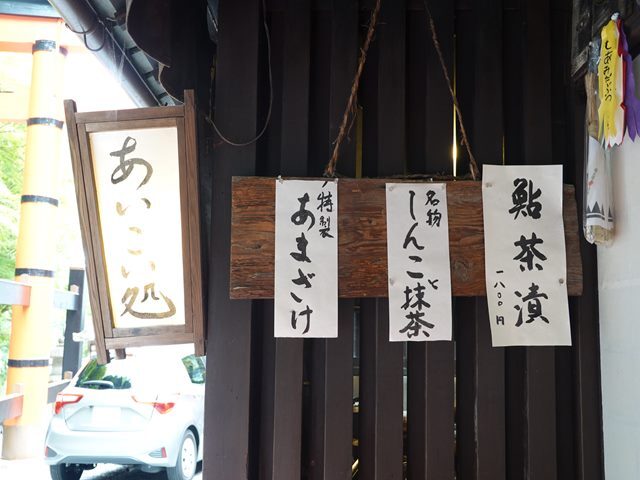 鮎茶漬
一八〇〇円
名物
しんこと抹茶
特製
あまざけ
あいこい処